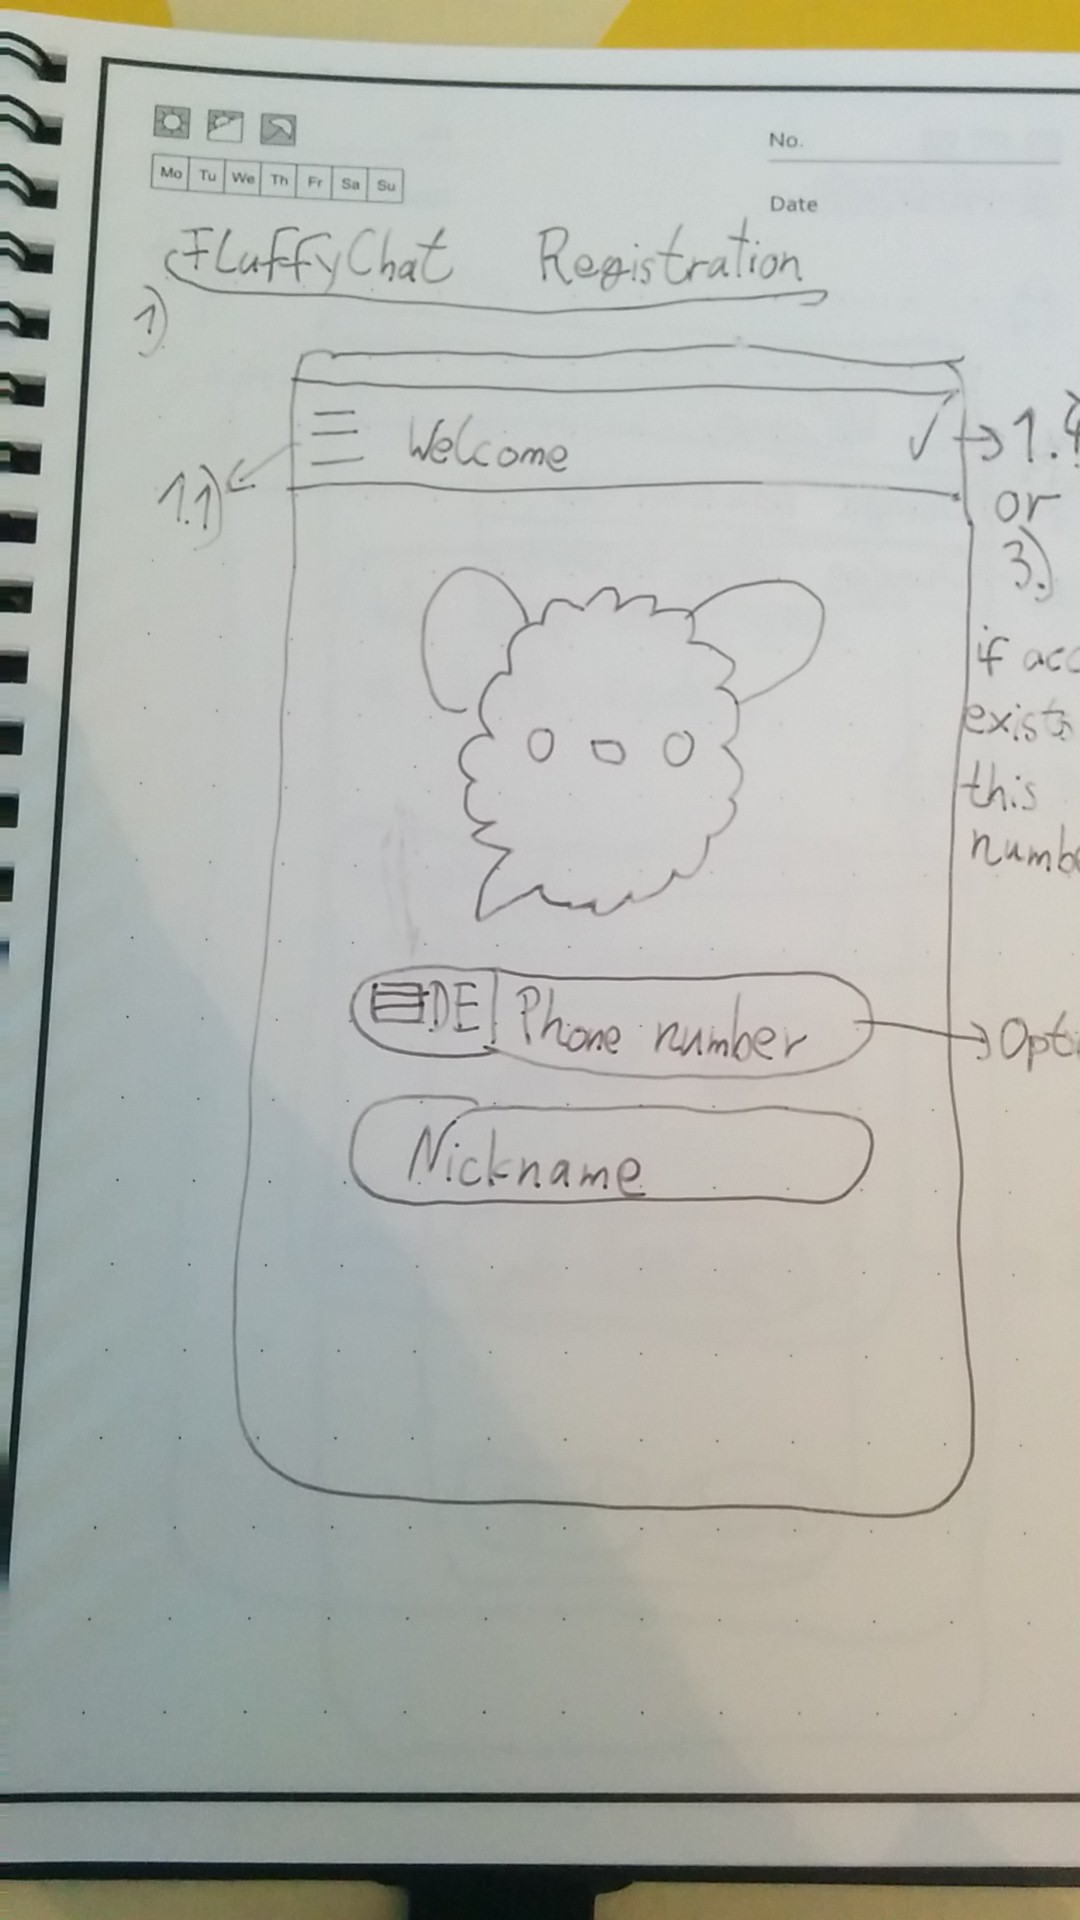 No.
Mo Tu We Th Fr Sa Su
Date
FluffyChat Registration
1)
Welcome
1.1)
or
3.)
if
exists
this
DE Phone number
Nickname